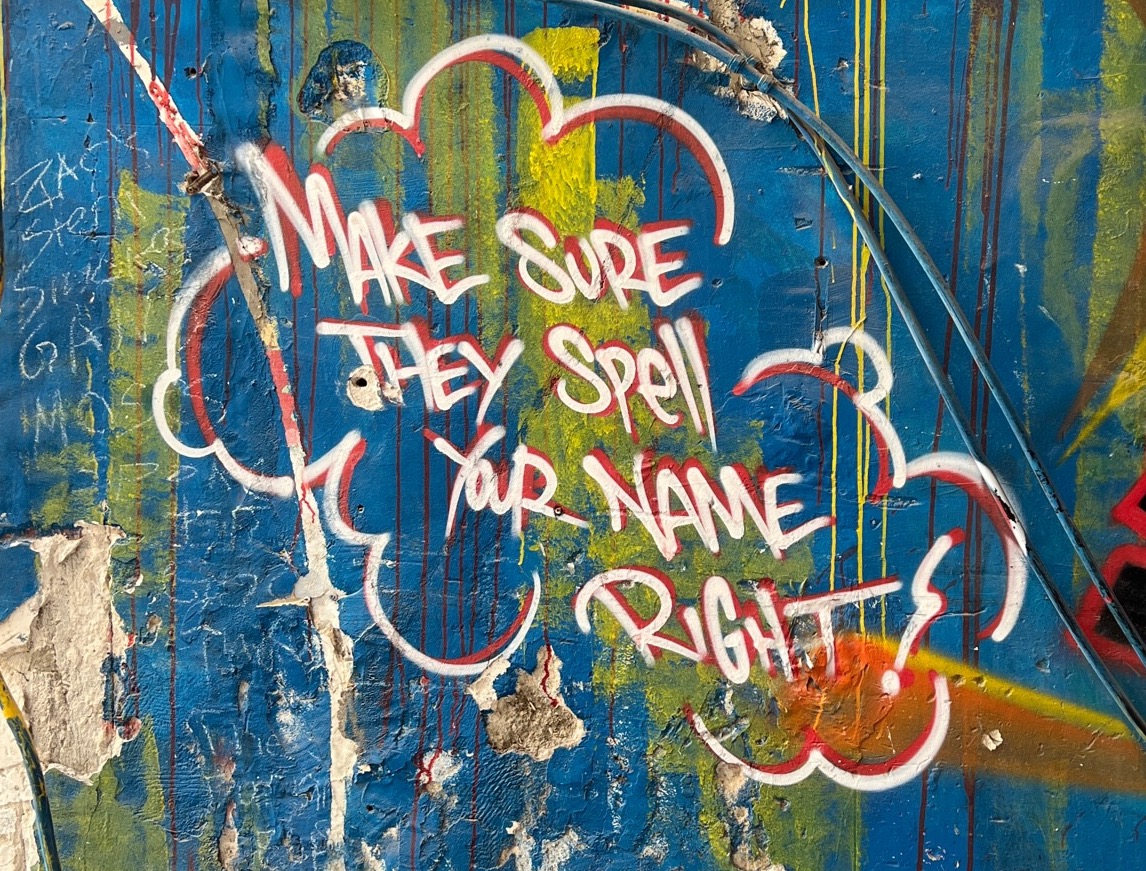 MAKE SURE
THEY Spell
YOUR NAME
RIGHT!